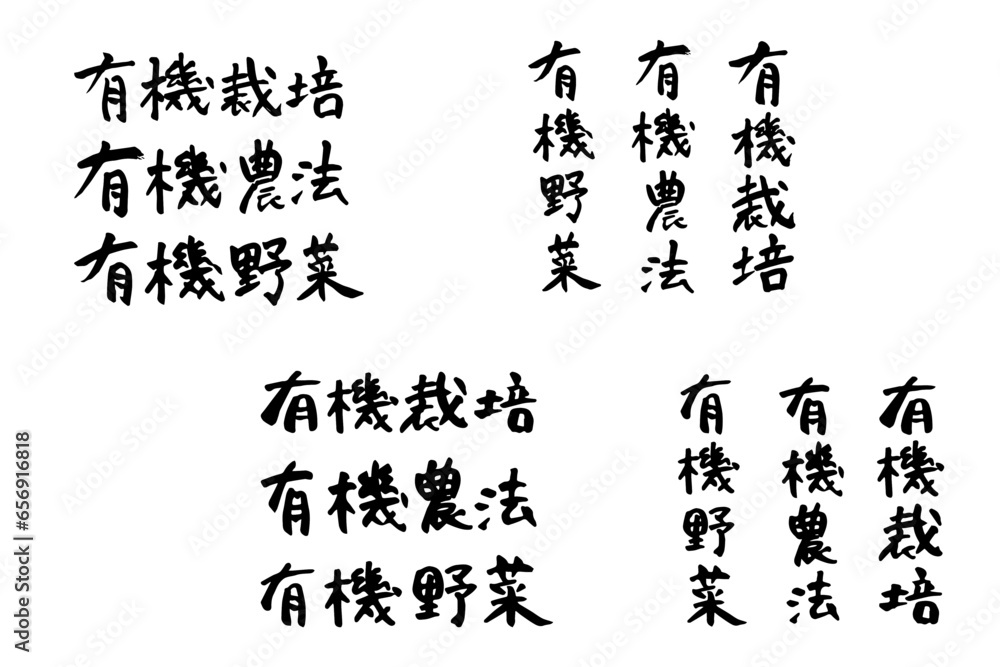 有機栽培
有機農法
有機野菜
有機栽培
有機農法
有機野菜
有機栽培
有機農法
有機野菜
有機栽培
有機農法
有機野菜
Adobe Stock | #656916818